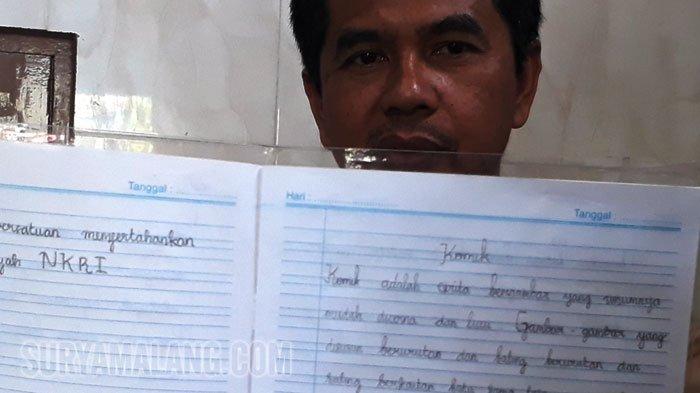 Tanggal :
ersatuan mempertahankan
yah NKRI
Hari :
Tanggal :
Komik
Komik adalah cerita bergambar yang umumnya
mudah dicerna dan lucu Gambar-gambar yang
disusun berurutan dan saling berurutan dan
saling berkaitan kata yang
SURYAMALANG.COM